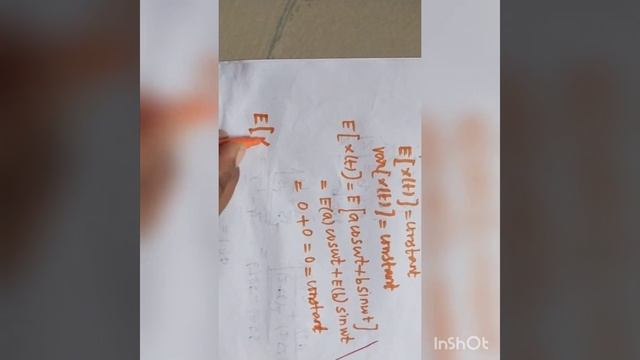 E[x(t)] = constant
var[x(t)] = constant
E[x(t)] = E[a cos wt + b sin wt]
= E(a) cos wt + E(b) sin wt
= 0 + 0 = 0 = constant
E[
InShOt